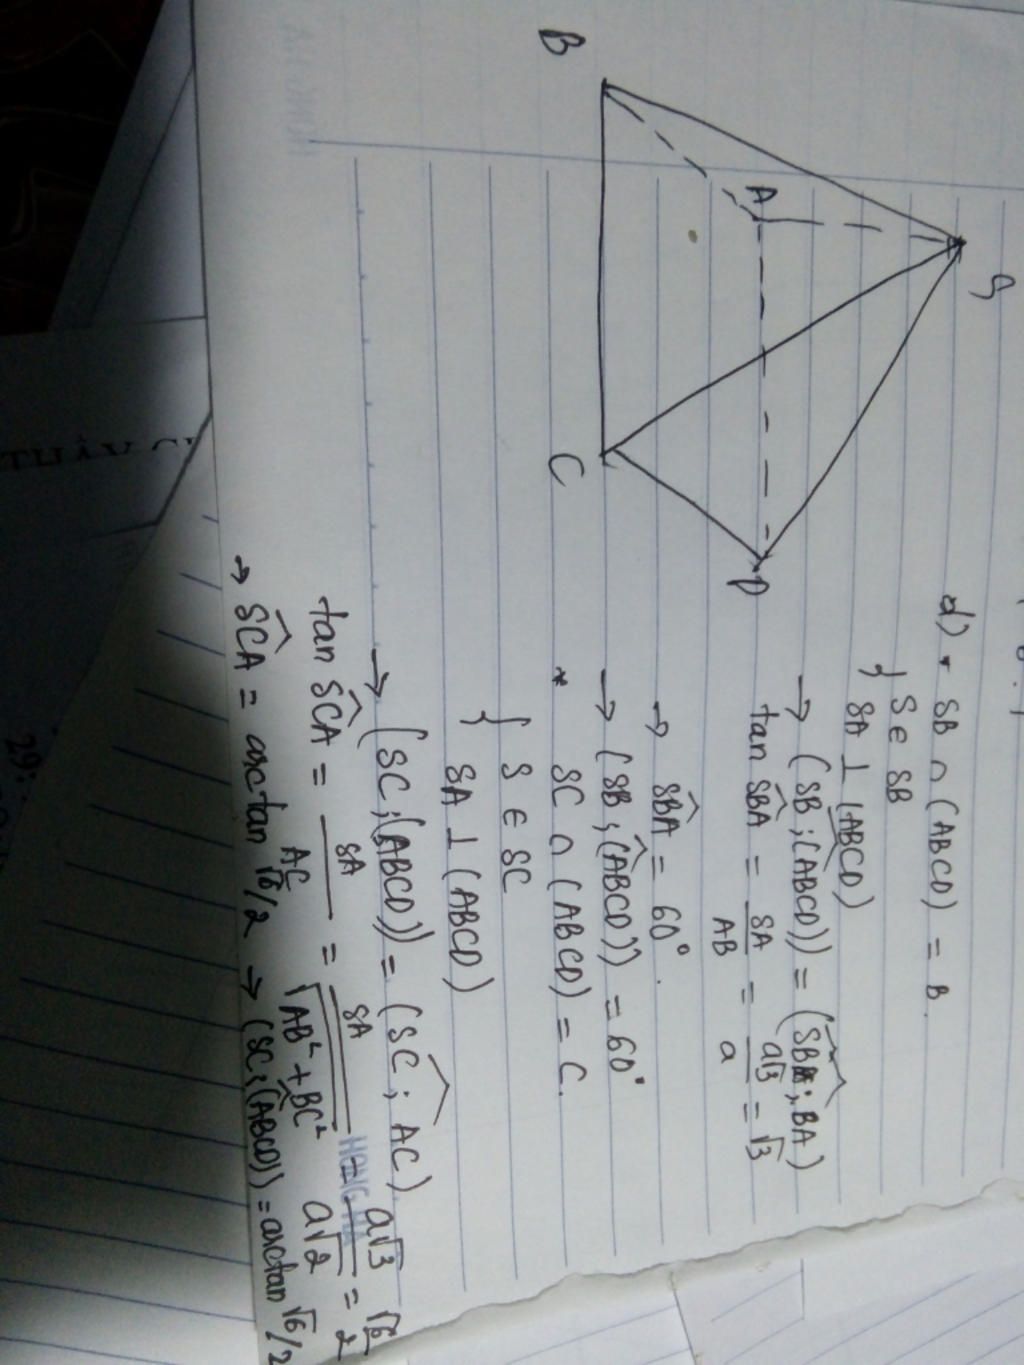 S
B
A
C
D
d) • SB ∩ (ABCD) = B.
{ S ∈ SB
SA ⊥ (ABCD)
→ (SB; (ABCD)) = (SB; BA)
tan SBA = SA / AB = a√3 / a = √3
→ SBA = 60°.
→ (SB; (ABCD)) = 60°
* SC ∩ (ABCD) = C.
{ S ∈ SC
SA ⊥ (ABCD)
→ (SC; (ABCD)) = (SC; AC)
tan SCA = SA / AC = SA / √AB² + BC² = a√3 / a√2 = √6 / 2
→ SCA = arctan √6/2 → (SC; (ABCD)) = arctan √6/2
HỒNG HÀ
29: